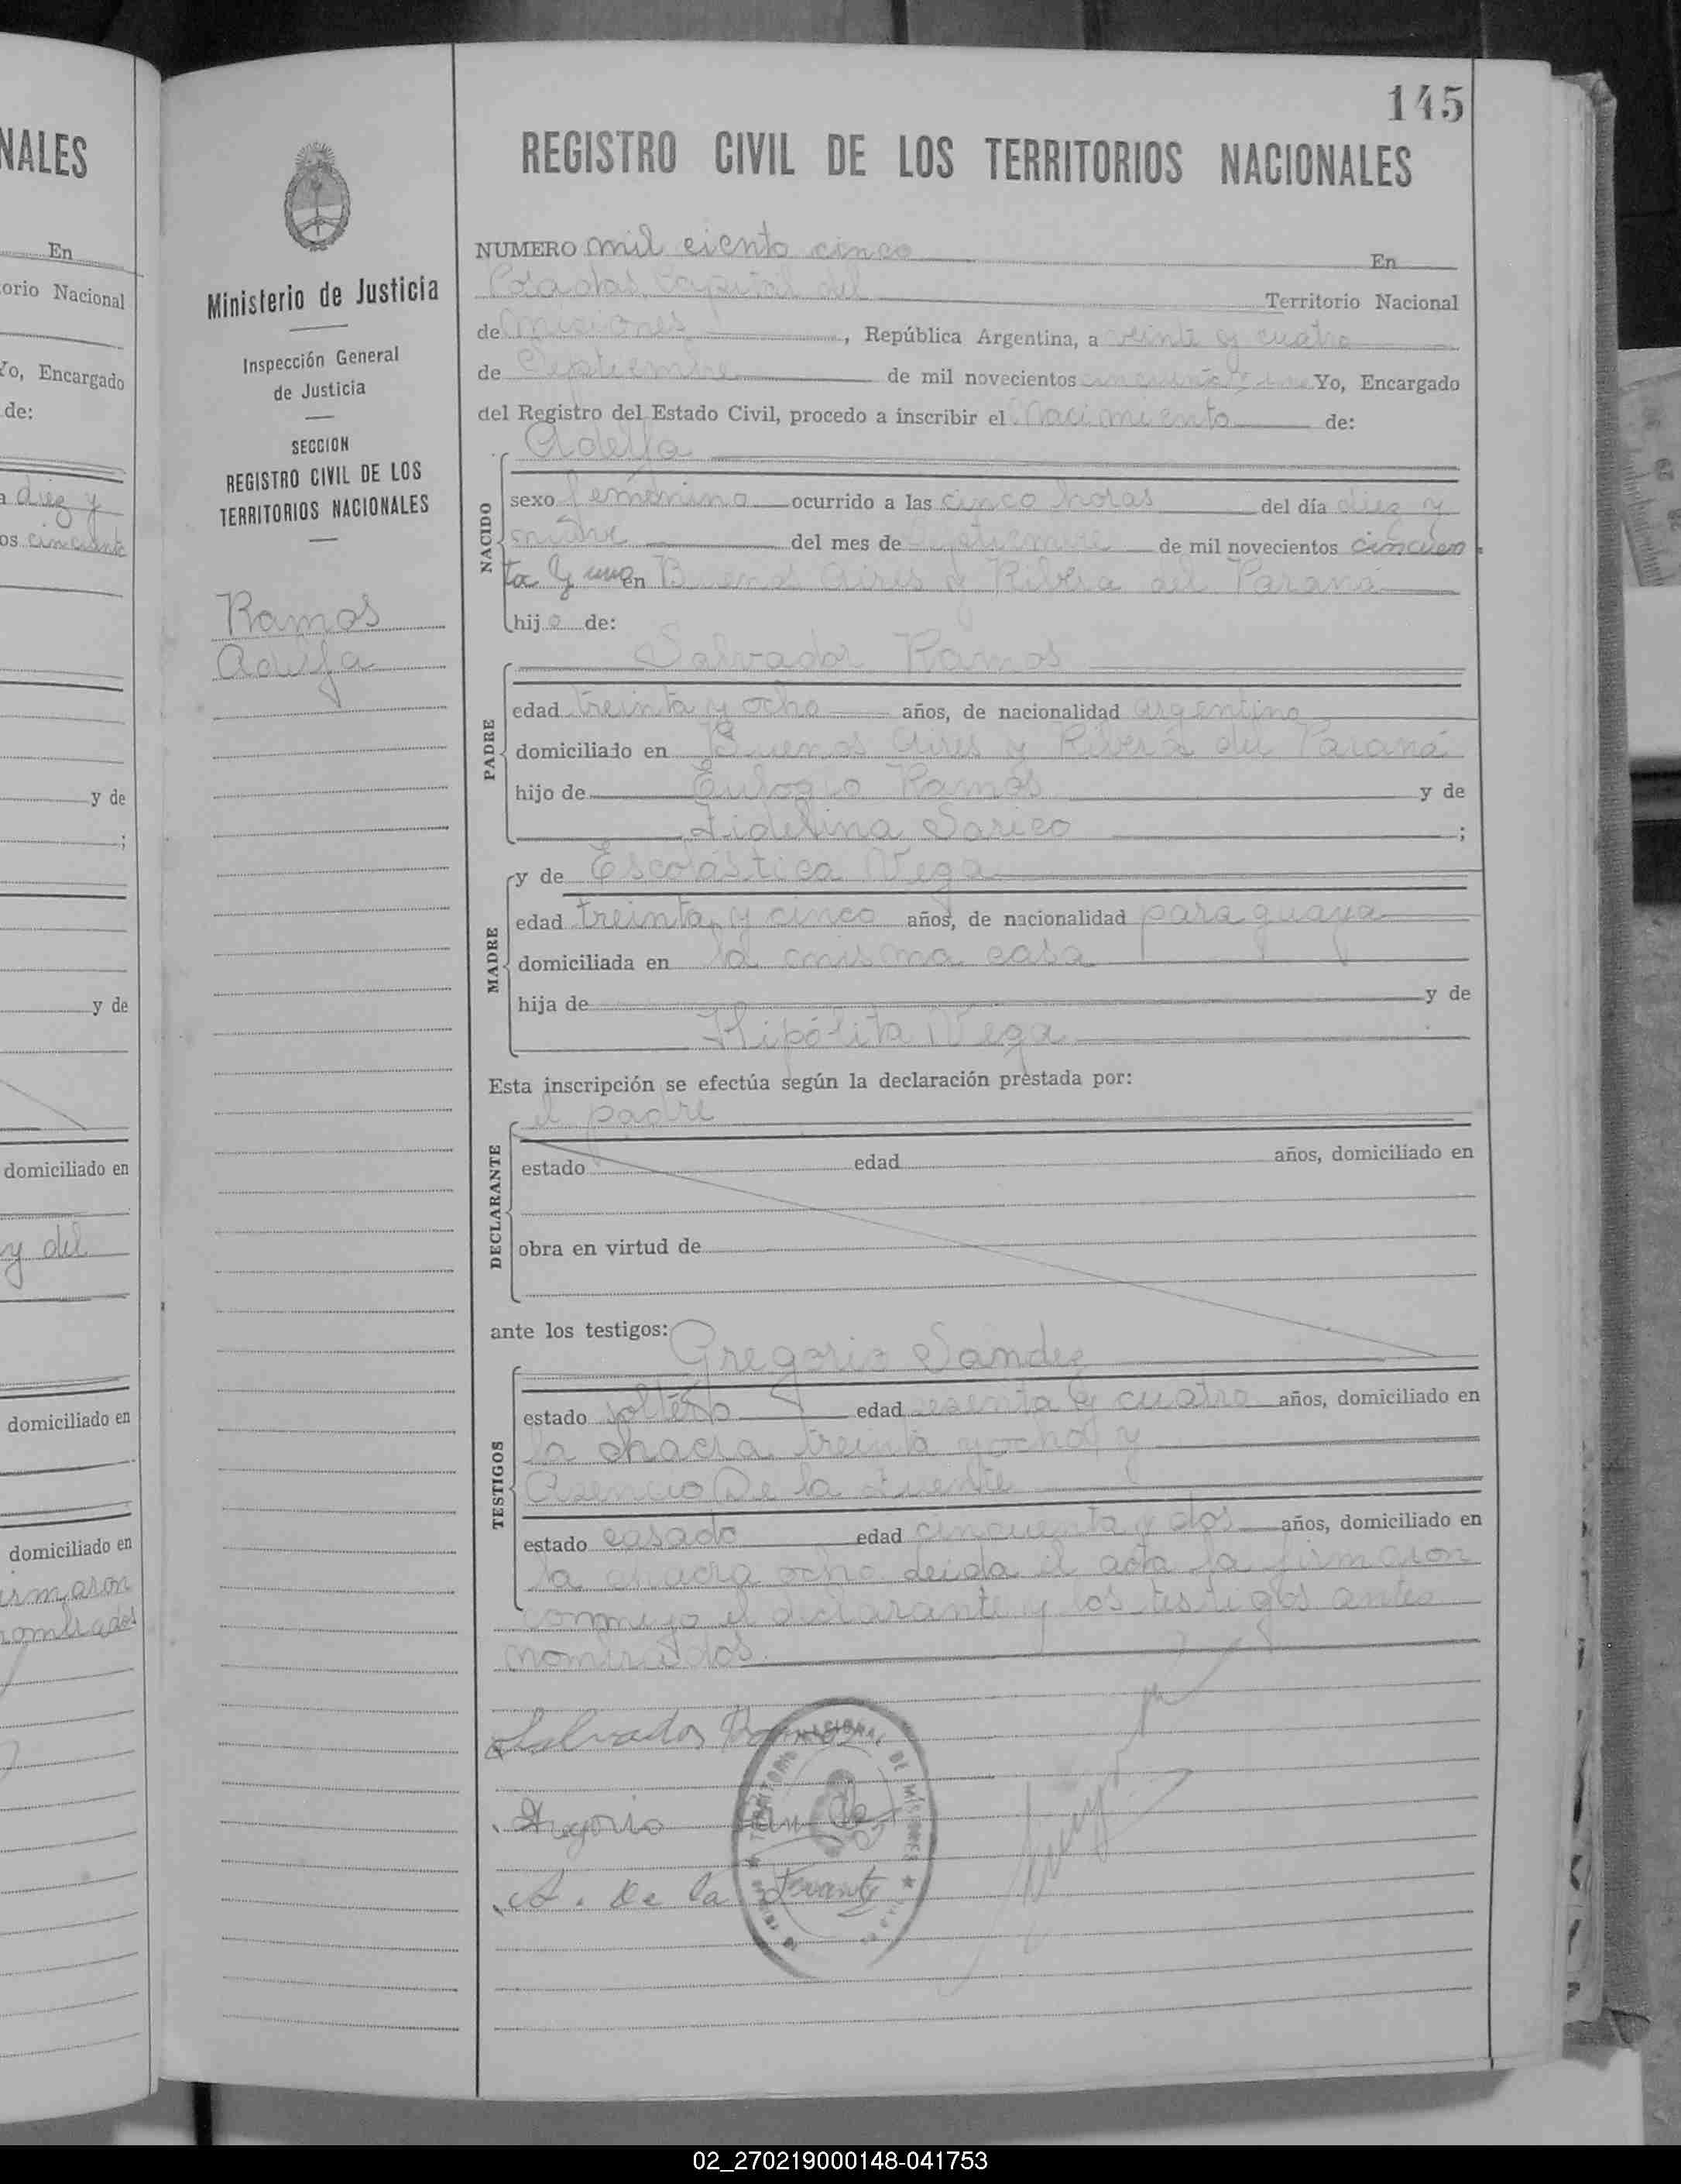 NALES
En
orio Nacional
Yo, Encargado
de:
a diez y
os cincuenta
y de
;
y de
domiciliado en
y del
domiciliado en
domiciliado en
irmaron
nombrados
Ministerio de Justicia
Inspección General
de Justicia
SECCION
REGISTRO CIVIL DE LOS
TERRITORIOS NACIONALES
Ramos
Adelfa
145
REGISTRO CIVIL DE LOS TERRITORIOS NACIONALES
NUMERO mil ciento cinco En
Posadas, Capital del Territorio Nacional
de Misiones, República Argentina, a veinte y cuatro
de Septiembre de mil novecientos cincuenta y uno Yo, Encargado
del Registro del Estado Civil, procedo a inscribir el Nacimiento de:
Adelfa
NACIDO
sexo femenino ocurrido a las cinco horas del día diez y
del mes de Septiembre de mil novecientos cincuen
ta y uno en Buenos Aires y Ribera del Paraná
hij a de:
Salvador Ramos
PADRE
edad treinta y ocho años, de nacionalidad argentina
domiciliado en Buenos Aires y Ribera del Paraná
hijo de Eulogio Ramos y de
Fidelina ;
y de Escolástica Vega
MADRE
edad treinta y cinco años, de nacionalidad paraguaya
domiciliada en la misma casa
hija de y de
Hipólita Vega
Esta inscripción se efectúa según la declaración prestada por:
el padre
DECLARANTE
estado edad años, domiciliado en
obra en virtud de
ante los testigos:
Gregorio Sandez
TESTIGOS
estado soltero edad sesenta y cuatro años, domiciliado en
la chacra treinta y ocho, y
Asencio De la Fuente
estado casado edad cincuenta y dos años, domiciliado en
la chacra ocho. Leida el acta la firmaron
conmigo el declarante y los testigos antes
nombrados.
Salvador Ramos
Gregorio
A. De la Fuente
TERRITORIO NACIONAL DE MISIONES
02_270219000148-041753